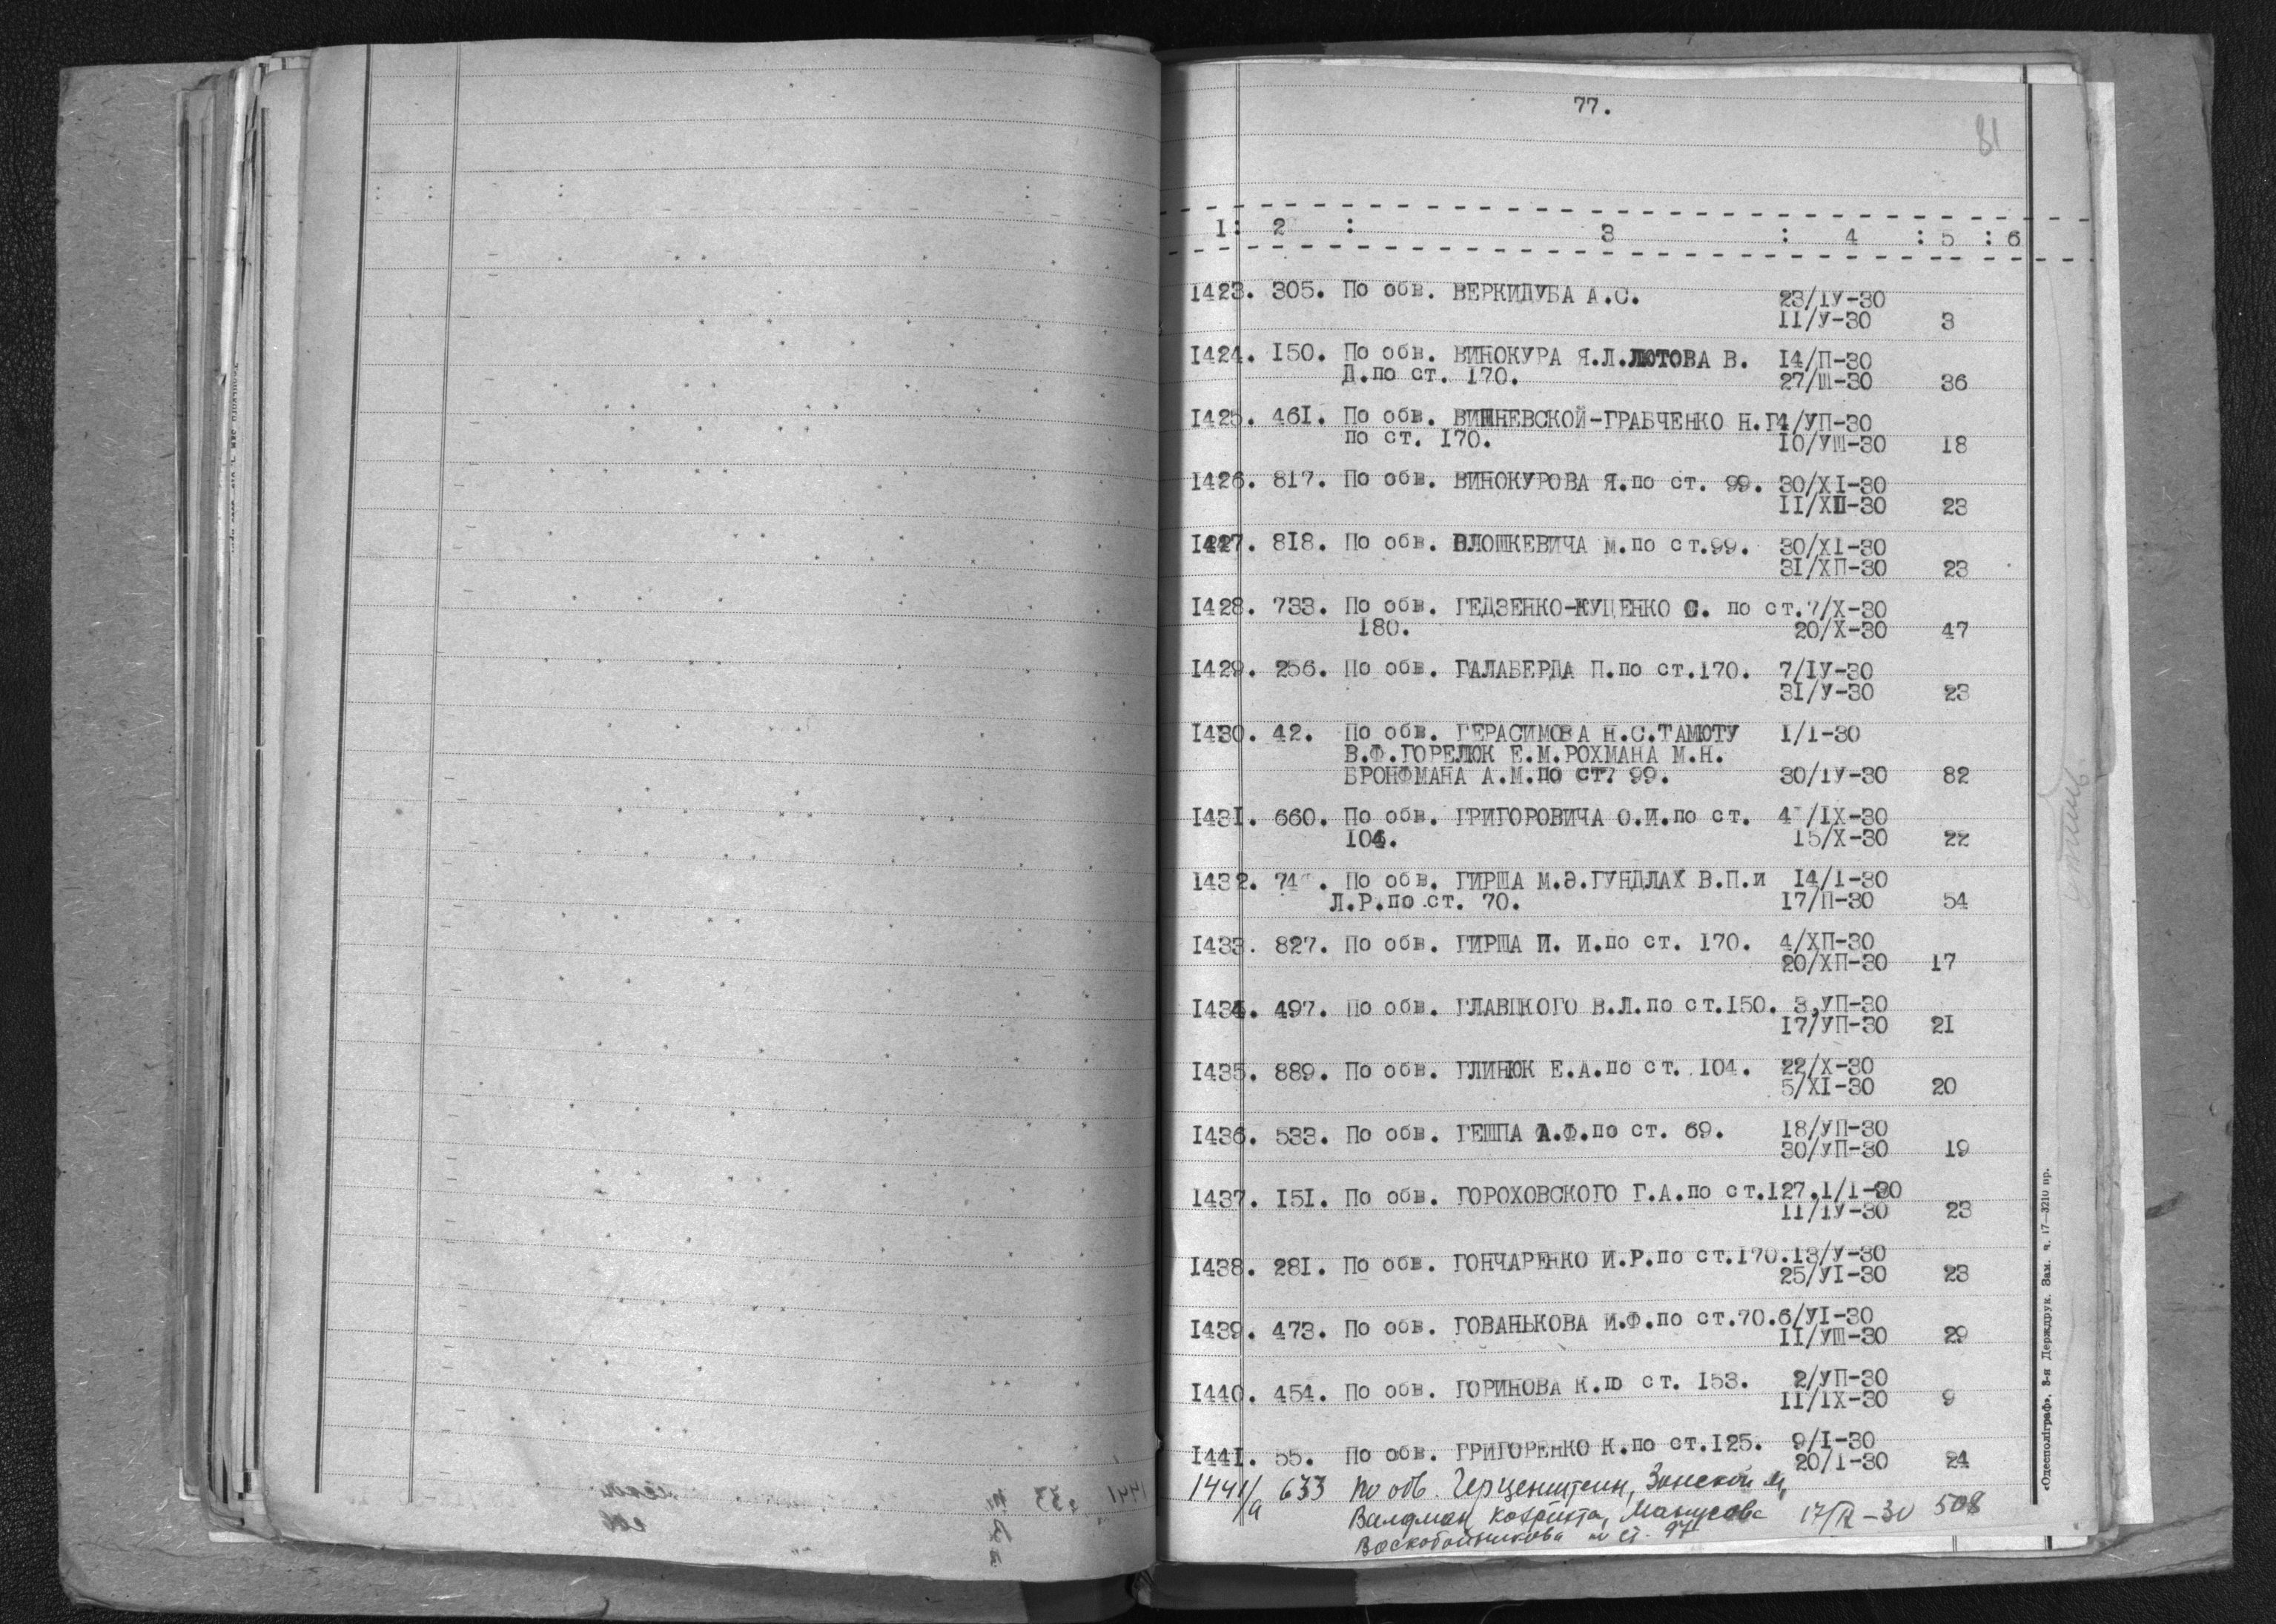 77.
81
1: 2 : 3 : 4 : 5 : 6
1423. 305. По обв. ВЕРКИДУБА А.С. 23/IУ-30
11/У-30 3
1424. 150. По обв. ВИНОКУРА Я.Л.ЛЮТОВА В. 14/П-30
Д.по ст. 170. 27/Ш-30 36
1425. 461. По обв. ВИШНЕВСКОЙ-ГРАБЧЕНКО Н.Г4/УП-30
по ст. 170. 10/УШ-30 18
1426. 817. По обв. ВИНОКУРОВА Я.по ст. 99. 30/XI-30
11/XП-30 23
1427. 818. По обв. ВЛОШКЕВИЧА М.по ст.99. 30/XI-30
31/XП-30 23
1428. 733. По обв. ГЕДЗЕНКО-КУЦЕНКО С. по ст.7/X-30
180. 20/X-30 47
1429. 256. По обв. ГАЛАБЕРДА П.по ст.170. 7/IУ-30
31/У-30 23
1430. 42. По обв. ГЕРАСИМОВА Н.С.ТАМЮТУ 1/1-30
В.Ф.ГОРЕЛЮК Е.М.РОХМАНА М.Н.
БРОНФМАНА А.М.по ст7 99. 30/IУ-30 82
1431. 660. По обв. ГРИГОРОВИЧА О.И.по ст. 4 /IX-30
104. 15/X-30 22
1432. 74 . По обв. ГИРША М.Э.ГУНДЛАХ В.П.и 14/1-30
Л.Р.по ст. 70. 17/П-30 54
1433. 827. По обв. ГИРША И. И.по ст. 170. 4/XП-30
20/XП-30 17
1434. 497. По обв. ГЛАВЦКОГО В.Л.по ст.150. 3,УП-30
17/УП-30 21
1435. 889. По обв. ГЛИНЮК Е.А.по ст. 104. 22/X-30
5/XI-30 20
1436. 533. По обв. ГЕШПА А.Ф.по ст. 69. 18/УП-30
30/УП-30 19
1437. 151. По обв. ГОРОХОВСКОГО Г.А.по ст.127.1/1-30
11/1У-30 23
1438. 281. По обв. ГОНЧАРЕНКО И.Р.по ст.170.13/У-30
25/УI-30 23
1439. 473. По обв. ГОВАНЬКОВА И.Ф.по ст.70.6/УI-30
11/УШ-30 29
1440. 454. По обв. ГОРИНОВА К.по ст. 153. 2/УП-30
11/IX-30 9
1441. 55. По обв. ГРИГОРЕНКО К.по ст.125. 9/I-30
20/1-30 24
1441/а 633 По обв. Герценштейн, Зонской М,
Валдман, Мапусова 508
Воскобойникова по ст. 97
«Одесполіграф», 3-я Держдрук. Зам. ч. 17—3210 пр.